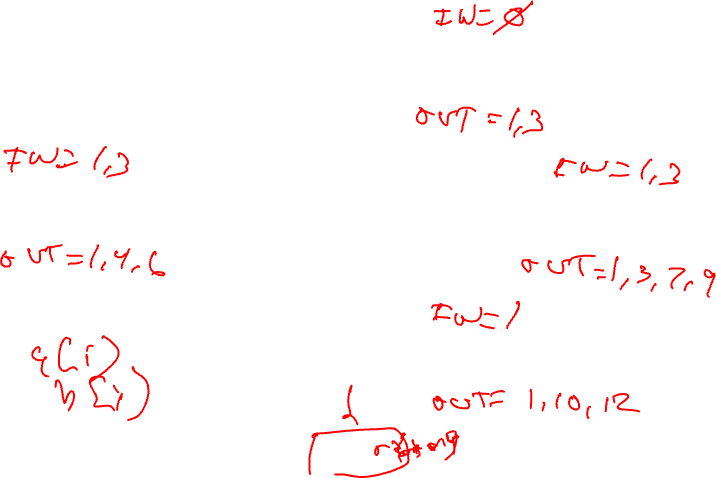 IN=∅
OUT=1,3
IN=1,3
IN=1,3
OUT=1,4,6
OUT=1,3,7,9
IN=1
a[i]
b[i]
OUT=1,10,12